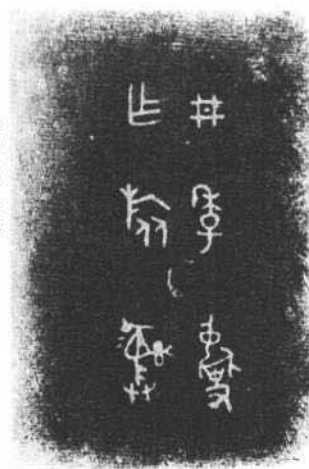 井季夐
乍旅彝